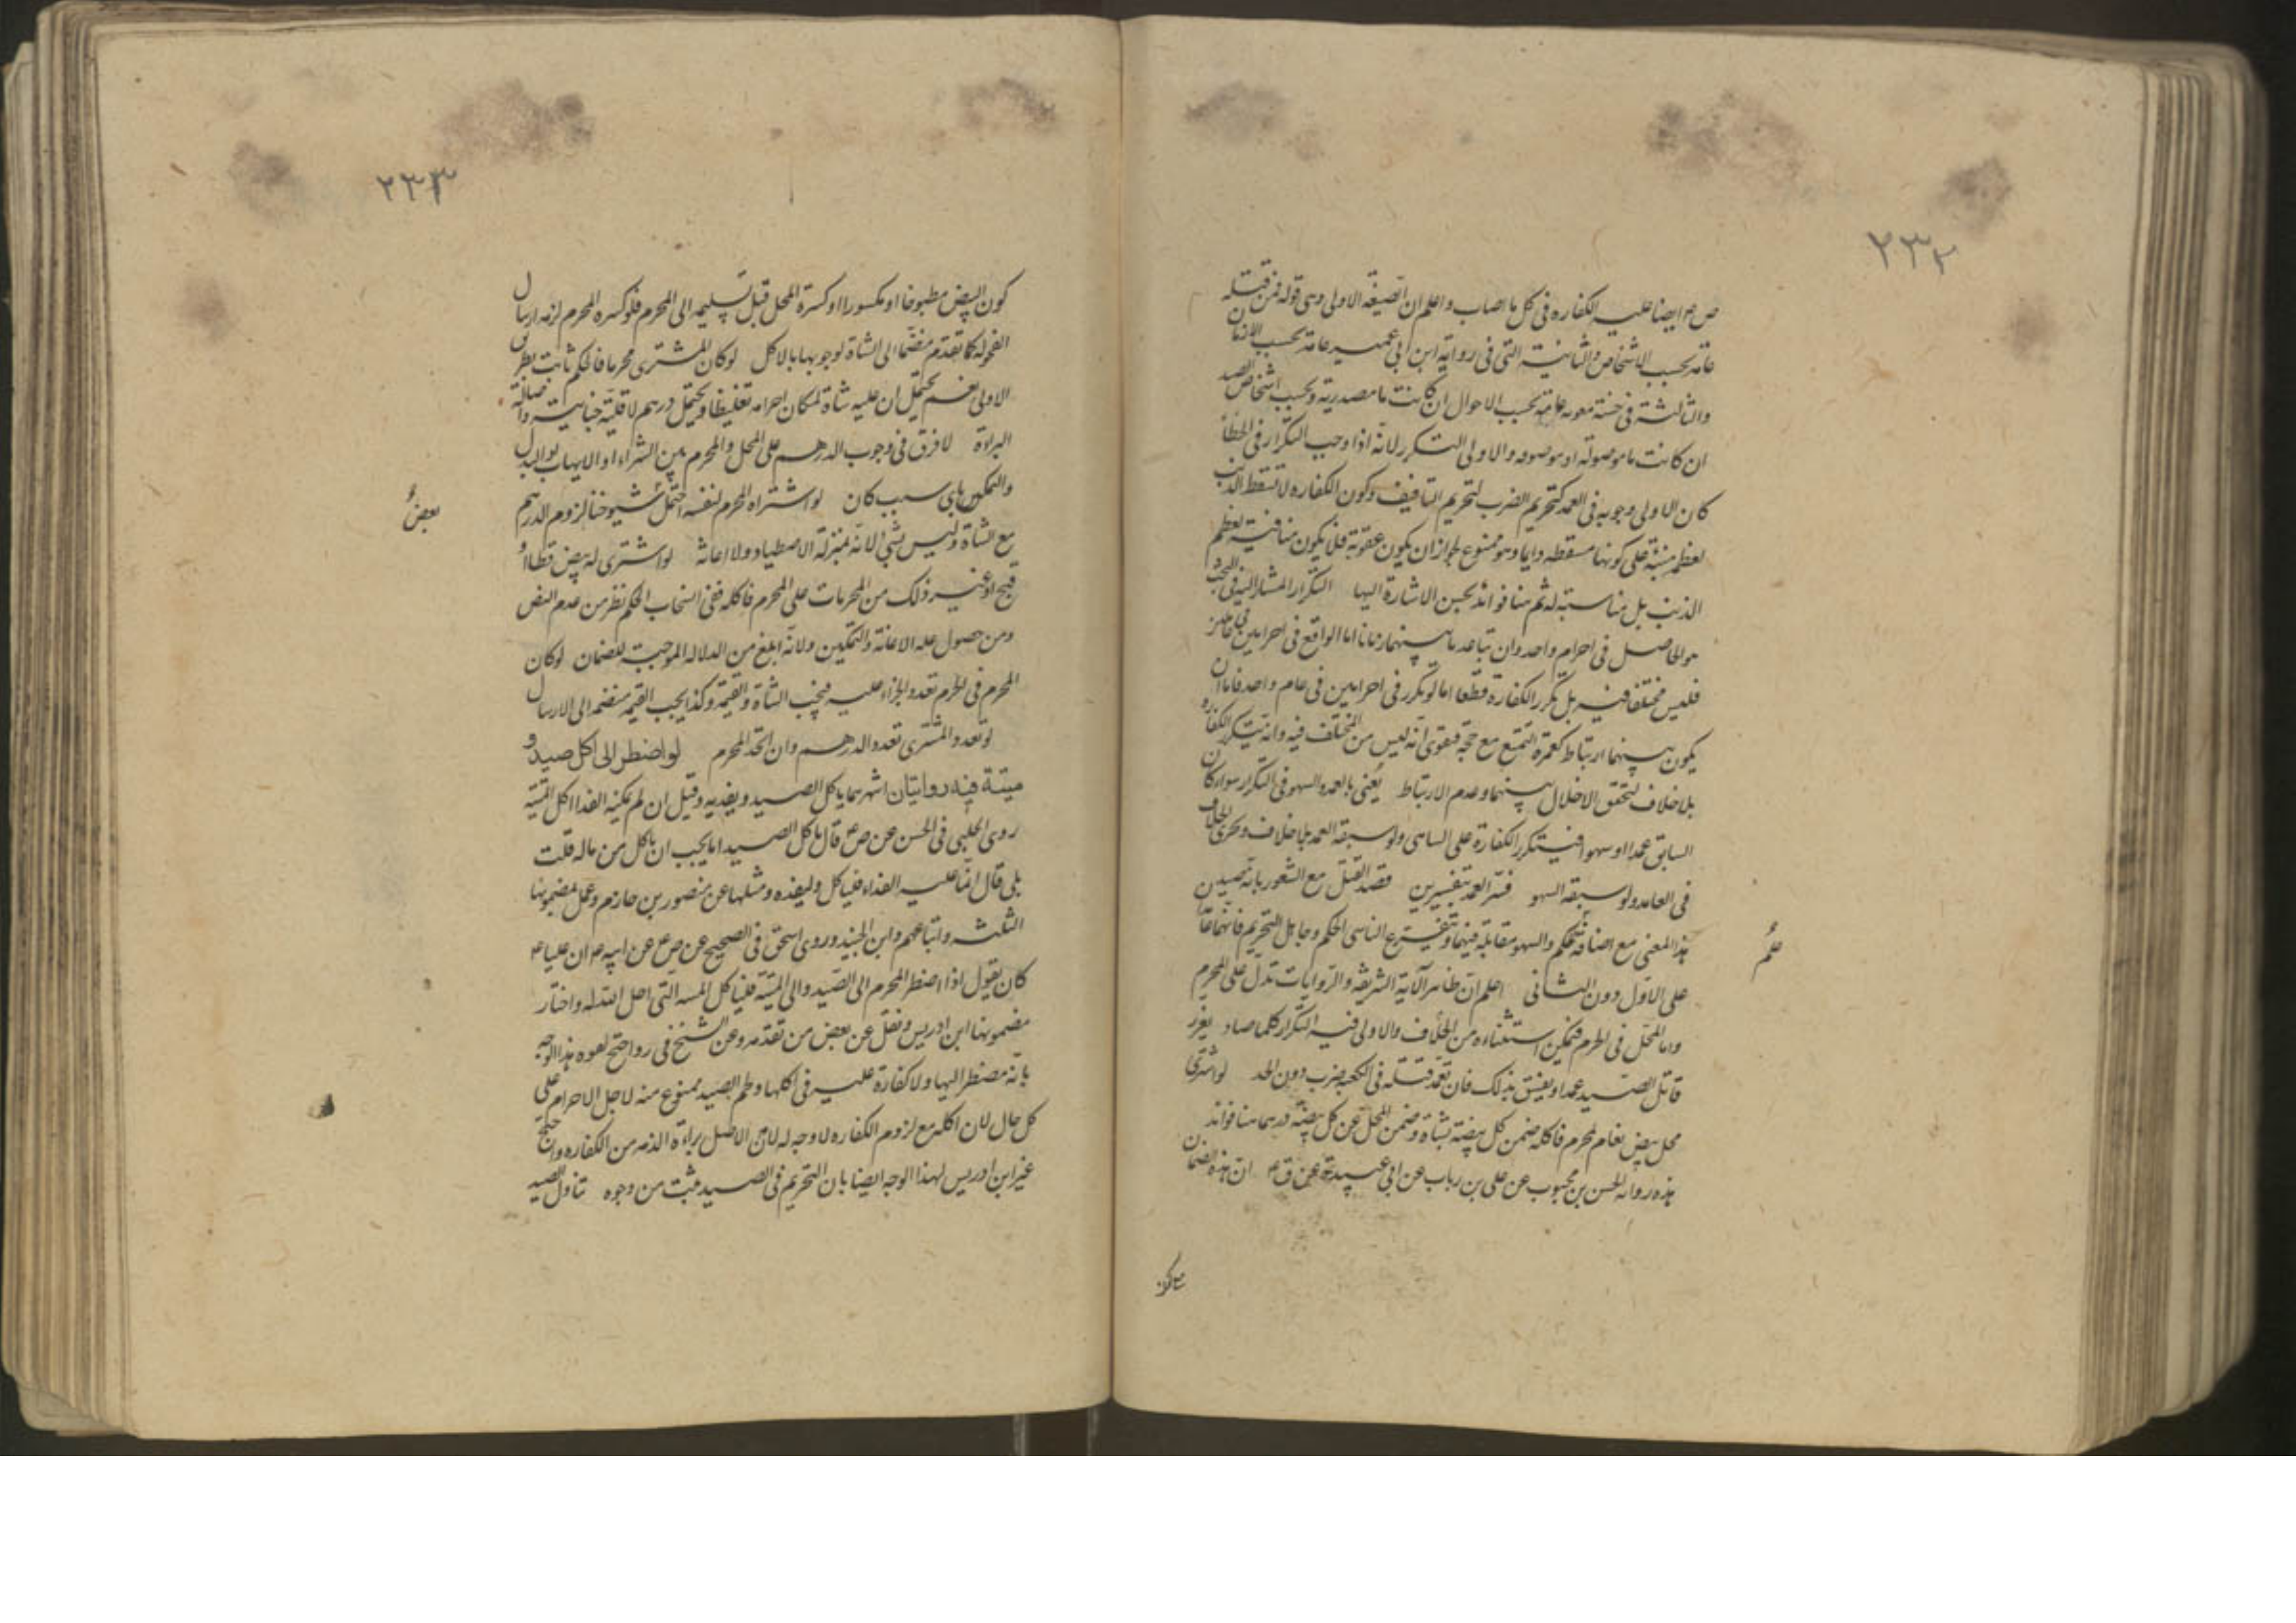 ٢٣٢
ص ع ايضا عليه الكفاره فى كل ما اصاب واعلم ان الصيغة الاولى وهى قوله فمن قتله
عامة بحسب الاشخاص والثانية التى فى رواية ابن ابى عمير عامة بحسب الازمان
والثالثة فى حسنة معويه عامة بحسب الاحوال ان كانت ما مصدرية وبحسب اشخاص الصيد
ان كانت ما موصولة او موصوفه والاولى التكرر لانه اذا وجب التكرار فى الخطأ
كان الاولى وجوبه فى العمد كتحريم الضرب لتحريم التافيف وكون الكفاره لا تسقط الذنب
لعظمه مبنية على كونها مسقطه دايما وهو ممنوع لجواز ان يكون عقوبة فلا يكون منافية لعظم
الذنب بل مناسبة له ثم هنا فوائد يحسن الاشارة اليها التكرار المشار اليه فى البحث
هو الحاصل فى احرام واحد وان تباعد ما بينهما زمانا اما الواقع فى احرامين فى عامين
فليس مختلفا فيه بل تكرر الكفارة قطعا اما لو تكرر فى احرامين فى عام واحد فاما ان
يكون بينهما ارتباط كعمرة التمتع مع حجه فقوى انه ليس من المختلف فيه وانه تتكرر الكفاره
بلا خلاف لتحقق الاخلال بينهما وعدم الارتباط يعنى بالعمد والسهو فى التكرار سواء كان
السابق عمدا او سهوا فيتكرر الكفارة على الساهى ولو سبقه العمد بلا خلاف ويجرى الخلاف
فى العامد ولو سبقه السهو فسر العمد بتفسيرين قصد القتل مع الشعور بانه صيد من
هذا المعنى مع اضافة الحكم والسهو مقابله فيهما ويتفرع الناسى الحكم وجاهل التحريم فانهما
علم
على الاول دون الثانى اعلم ان ظاهر الآية الشريفة والروايات تدل على المحرم
واما المحل فى الحرم فيمكن استثناءه من الخلاف والاولى فيه التكرار كلما صاد يعزر
قاتل الصيد عمدا ويفسق بذلك فان تعمد قتله فى الكعبه ضرب دون الحد لو اشترى
محل بيض نعام لمحرم فاكله ضمن كل بيضة بشاة وضمن المحل عن كل بيضة درهما هنا فوائد
هذه رواية الحسن بن محبوب عن على بن رباب عن ابى عبيدة عن ق ع ان هذه الضمان
٢٣٣
كون البيض مطبوخا او مكسورا او كسرة المحل قبل تسليمه الى المحرم فلو كسره المحرم لزمه ارسال
الفحولة كما تقدم مضما الى الشاة لوجوبها بالاكل لو كان المشترى محرما فالحكم ثابت بطريق
الاولى نعم يحتمل ان عليه شاة لمكان احرامه تغليظا ويحتمل درهم لاقلية جنايته واصالة
البراءة لا فرق فى وجوب الدرهم على المحل والمحرم بين الشراء او الايهاب او البدل
والتمكين باى سبب كان لو اشتراه المحرم لنفسه احتمل شيوخنا لزوم الدرهم
بعض
مع الشاة وليس بشئ لانه بمنزلة الاصطياد ولا اعانة لو اشترى له بيض قطا او
قبج او غير ذلك من المحرمات على المحرم فاكله ففى انسحاب الحكم نظر من عدم النص
ومن حصول علة الاعانة والتمكين ولانه ابلغ من الدلالة الموجبة للضمان لو كان
المحرم فى الحرم تعدد الجزاء عليه فيجب الشاة والقيمة وكذا يجب القيمة منضمه الى الارسال
لو تعدد المشترى تعدد الدرهم وان اتحد المحرم لو اضطر الى اكل صيد و
ميتة فيه روايتان اشهرهما ياكل الصيد ويفديه وقيل ان لم يمكنه الفدا اكل الميتة
روى الحلبى فى الحسن عن ص ع قال ياكل الصيد اما يجب ان ياكل من ماله قلت
بلى قال انما عليه الفداء فلياكل وليفده ومثلها عن منصور بن حازم وعمل بمضمونها
الثلثه واتباعهم وابن الجنيد وروى اسحق فى الصحيح عن ص ع عن ابيه ع ان عليا ع
كان يقول اذا اضطر المحرم الى الصيد والى الميتة فلياكل الميته التى احل الله له واختار
مضمونها ابن ادريس ونقل عن بعض من تقدمه وعن الشيخ فى رواحتج لهذا الوجه
بانه مضطر اليها ولا كفارة عليه فى اكلها ولحم الصيد ممنوع منه لاجل الاحرام على
كل حال لان اكله مع لزوم الكفاره لا وجه له لان الاصل براءة الذمه من الكفاره واحتج
غير ابن ادريس لهذا الوجه ايضا بان التحريم فى الصيد مثبت من وجوه تناول الصيد